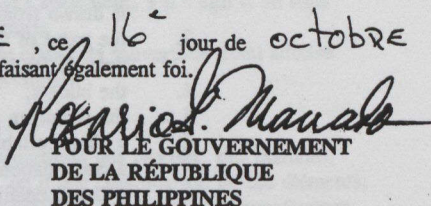 E , ce 16e jour de octobRE
faisant également foi.
Rosario G. Manalo
POUR LE GOUVERNEMENT
DE LA RÉPUBLIQUE
DES PHILIPPINES